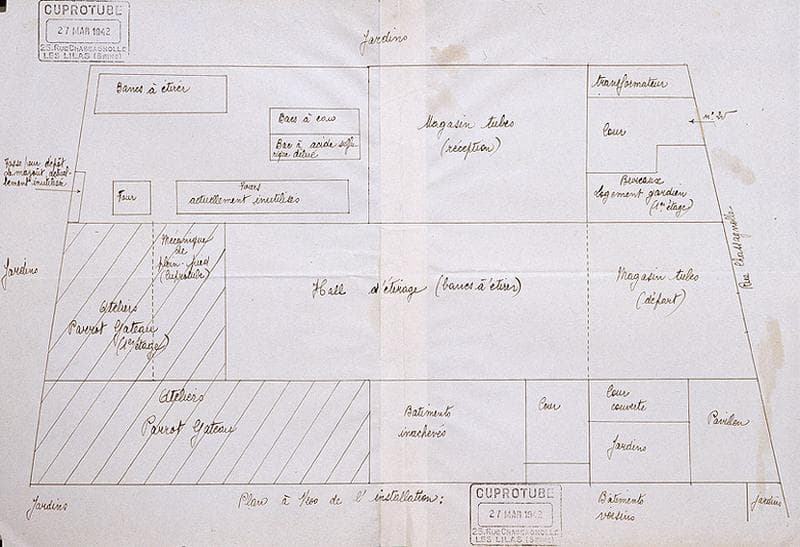 CUPROTUBE
27 MAR 1942
23, Rue CHASSAGNOLLE
LES LILAS (Seine)
Jardins
Bancs à étirer
Bacs à eau
Bac à acide sulfu-
rique dilué
Magasin tubes
(réception)
transformateur
Cour
n° 25
Fosse pour dépôt
de mazout actuel-
lement inutilisé
Four
Fours
actuellement inutilisés
Bureaux
Logement gardien
(1er étage)
Rue Chassagnolle
Jardins
Mécanique
de
plain-pied
(Cuprotube)
Ateliers
Parrot Gateau
(1er étage)
Hall d'étirage (bancs à étirer)
Magasin tubes
(départ)
Ateliers
Parrot Gateau
Batiments
inachevés
Cour
Cour
couverte
Jardins
Pavillon
Jardins
Plan à de l'installation:
CUPROTUBE
27 MAR 1942
23, Rue CHASSAGNOLLE
LES LILAS (Seine)
Bâtiments
voisins
Jardins